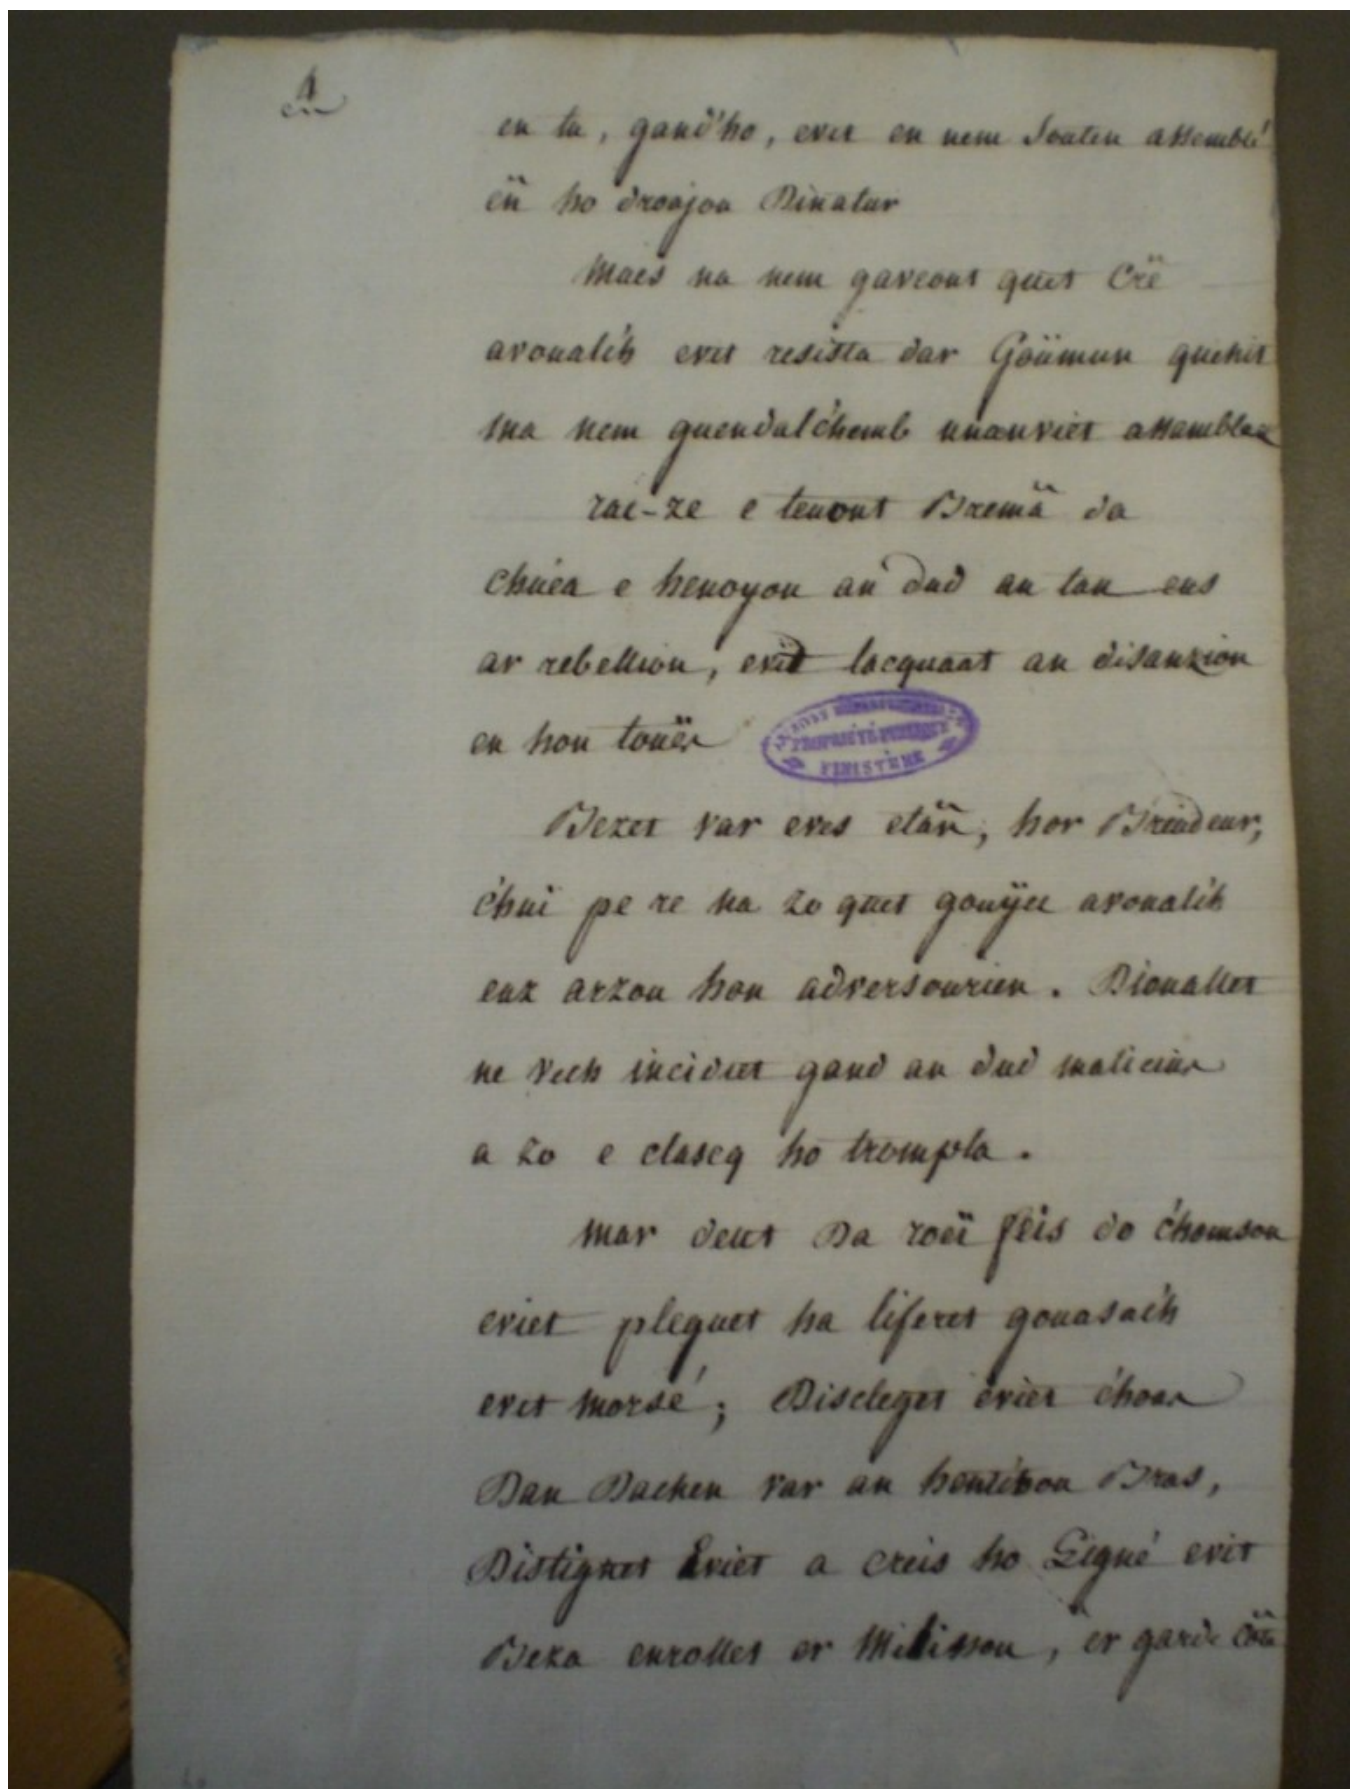 4
en tu, gand'ho, evit en nem souten assemblé
en ho droajou Dinatur
Maes na nem gaveont quet Crë
avoualc'h evit resista dar Goümun quehit
ma nem guendalc'hemb unanviet assamblae
rac-ze e teuont Bremä da
c'huea e henoyou an dud an tan eus
ar rebellion, evit lacquaat an disanzion
en hon touër
PROPRIÉTÉ PUBLIQUE
FINISTÈRE
Bezet var eves etän, hor Breudeur,
c'hui pe re na zo quet gouyee avoualc'h
euz arzou hon adversourien. Diouallet
ne vech incideet gand an dud malicius
a zo e clascq ho trompla.
Mar deut Da roëi feis do c'homsou
eviet pleguet ha lïferet gouasaïh
evit morsé; Discleget eviet c'hoar
Dan Dachen var an hentchou Bras,
Distignet Eviet a creis ho Ligné evit
Beza enrollet er Milissou, er garde côte